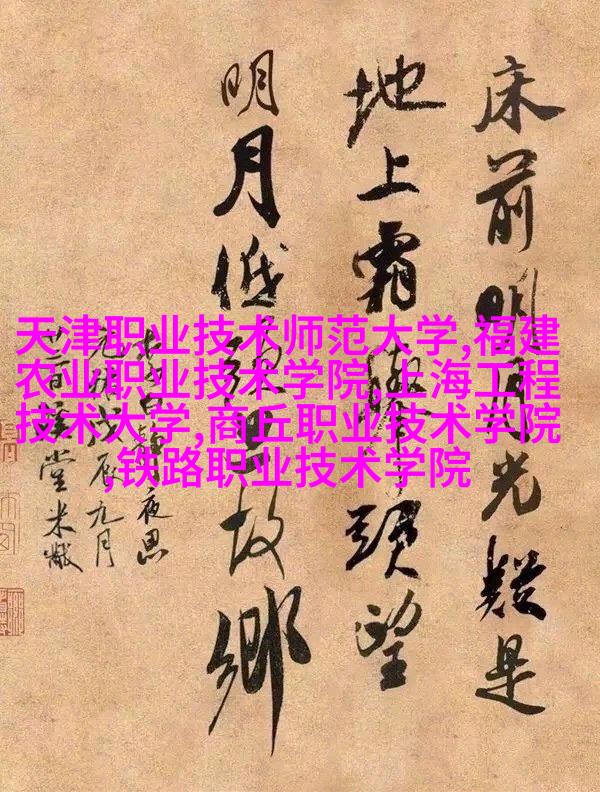 天津职业技术师范大学,福建
农业职业技术学院,上海工程
技术大学,商丘职业技术学院
,铁路职业技术学院
床前明月光疑是
地上霜舉頭望
明月低頭思故鄉
白静夜思
戊辰九月
堂米黻